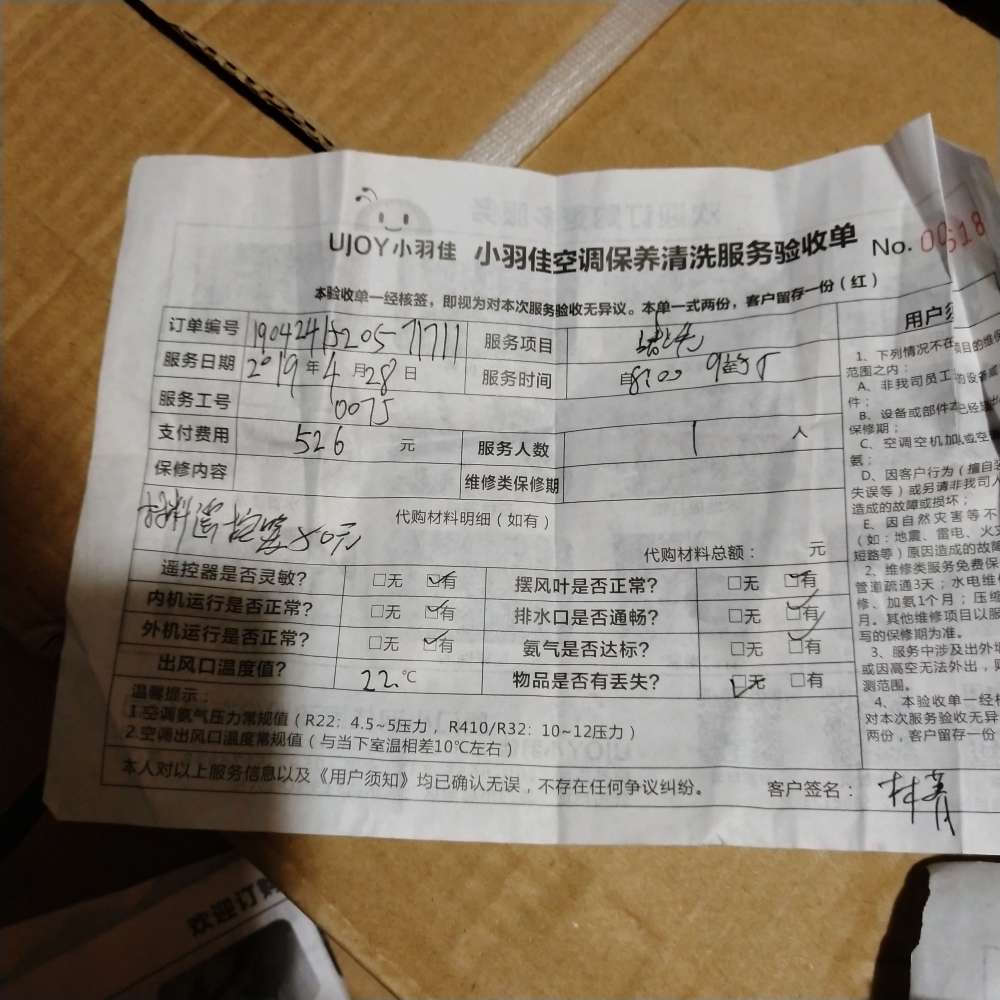 UJOY小羽佳 小羽佳空调保养清洗服务验收单 No.
本验收单一经核签，即视为对本次服务验收无异议。本单一式两份，客户留存一份（红）
订单编号 1904241520571711 服务项目
服务日期 2019年4月28日 服务时间
服务工号 0075
支付费用 526 元 服务人数 1 人
保修内容 维修类保修期
代购材料明细（如有）
材料遥控器50元
代购材料总额： 元
遥控器是否灵敏？ □无 ☑有 摆风叶是否正常？ □无 ☑有
内机运行是否正常？ □无 ☑有 排水口是否通畅？ □无 ☑有
外机运行是否正常？ □无 ☑有 氨气是否达标？ □无 ☑有
出风口温度值？ 22.℃ 物品是否有丢失？ ☑无 □有
温馨提示：
1.空调氨气压力常规值（R22：4.5~5压力，R410/R32：10~12压力）
2.空调出风口温度常规值（与当下室温相差10℃左右）
本人对以上服务信息以及《用户须知》均已确认无误，不存在任何争议纠纷。 客户签名： 林菁
用户须
1、下列情况不在
项目的维保
范围之内：
A、非我司员工
的设备
件；
B、设备或部件
已经
保修期；
C、空调空机加
或空
氨；
D、因客户行为（擅自
失误等）或另请非我司人
造成的故障或损坏；
E、因自然灾害等不
（如：地震、雷电、火
短路等）原因造成的故障
2、维修类服务免费保
管道疏通3天；水电维
修、加氨1个月；压缩
月。其他维修项目以服
写的保修期为准。
3、服务中涉及出外墙
或因高空无法外出，则
测范围。
4、本验收单一经核
对本次服务验收无异
两份，客户留存一份
欢迎订购